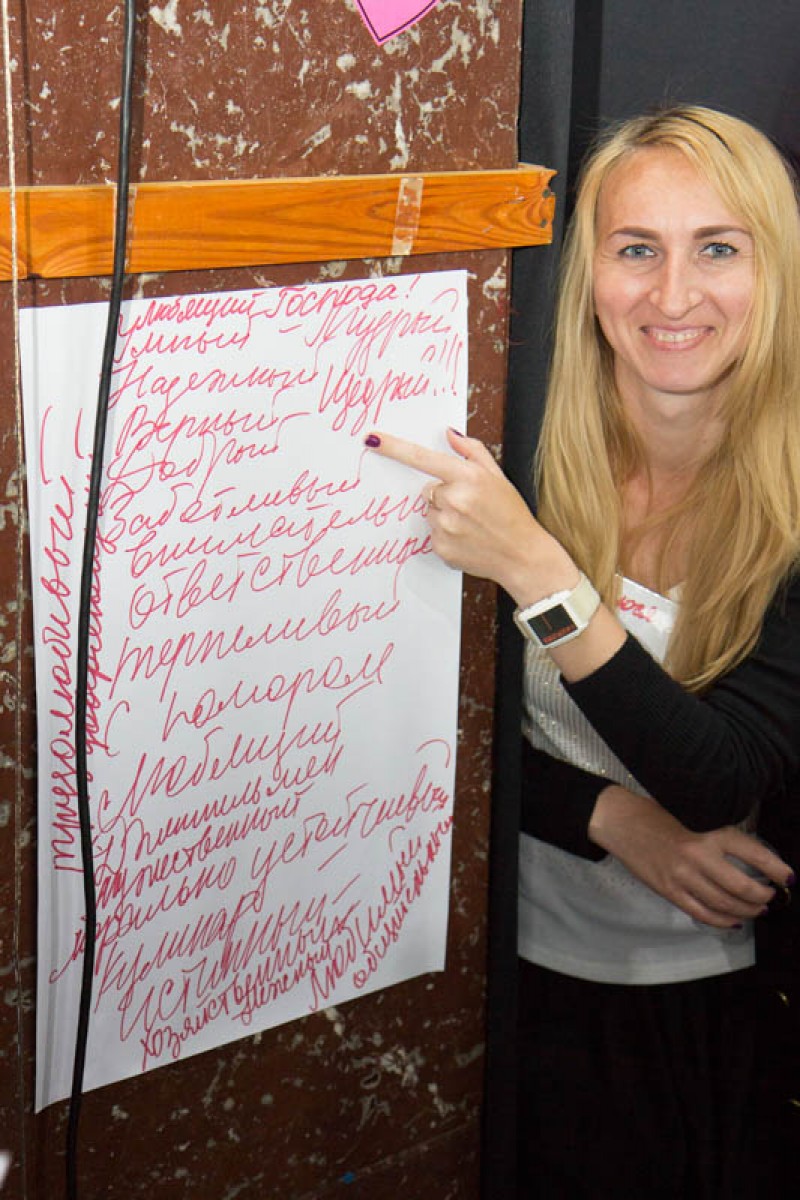 любящий Господа!
Умный - Мудрый
Надежный
Щедрый!!!
Верный -
Добрый
Заботливый
внимательны
ответственные
терпеливый
С юмором
Любящий
Джентльмен
мужественный
морально устойчивый
Кулинар -
Истинный -
хозяйственный
нежный
Любимый
обаятельный
трудолюбивый